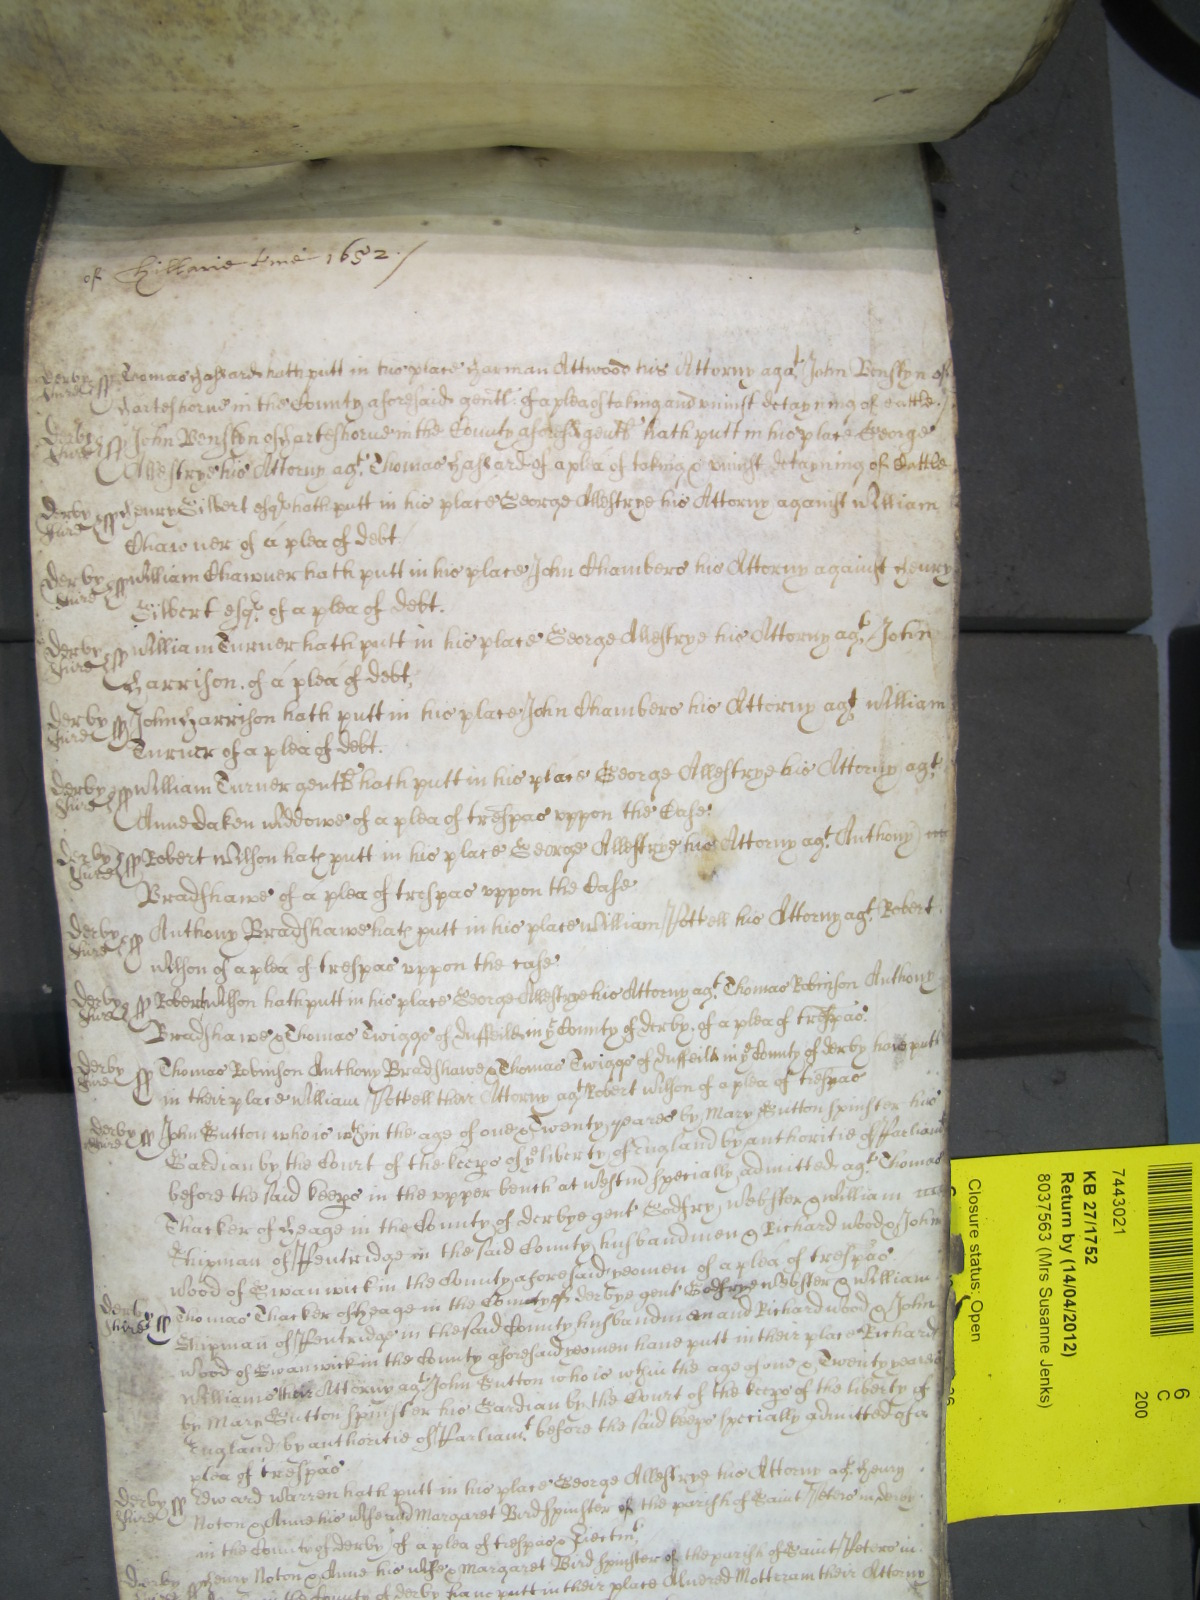 of Hillarie tme 1652./
Derby shire ss Thomas Hassard hath putt in his place Harman Attwood his Attorny agt John Benskyn of
Harteshorne in the County aforesaid gentl: of a plea of taking and uniust detayning of Cattle.
Derby shire ss John Benskyn of Harteshorne in the County aforesd gentl hath putt in his place George
Allestrye his Attorny agt Thomas Hassard of a plea of taking & uniust detayning of Cattle
Derby shire ss Henry Gilbert esqr hath putt in his place George Allestrye his Attorny against William
Chawner of a plea of debt
Derby shire ss William Chawner hath putt in his place John Chambers his Attorny against Henry
Gilbert esqr. of a plea of debt.
Derby shire ss William Turner hath putt in his place George Allestrye his Attorny agt John
Harrison. of a plea of debt,
Derby shire ss John Harrison hath putt in his place John Chambers his Attorny agt William
Turner of a plea of debt.
Derby shire ss William Turner gentl hath putt in his place George Allestrye his Attorny agt
Anne Daken Widdowe of a plea of trespas uppon the Case:
Derby shire ss Robert Wilson hath putt in his place George Allestrye his Attorny agt. Anthony
Bradshawe of a plea of trespas uppon the Case
Derby shire ss Anthony Bradshawe hath putt in his place William Pottell his Attorny agt Robert
Wilson of a plea of trespas uppon the case
Derby shire ss Robert Wilson hath putt in his place George Allestrye his Attorny agt Thomas Robinson Anthony
Bradshawe & Thomas Twiggs of duffeild in ye County of derby. of a plea of trespas.
Derby shire ss Thomas Robinson Anthony Bradshawe & Thomas Twiggs of duffeild in ye County of derby have putt
in their place William Pottell their Attorny agt Robert Wilson of a plea of trespas
Derby shire ss John Button who is wthin the age of one & Twenty yeares by Mary Button spinster his
Gardian by the Court of the keeps of ye liberty of England by authoritie of Parliamt
before the said keeps in the upper bench at Westmr specially admitted. agt Thomas
Thacker of Heage in the County of derbye gent Godfry Webster & William
Shipman of Pentridge in the said County husbandmen & Richard Wood & John
Wood of Swanwick in the County aforesaid yeomen of a plea of trespas
Derby shire ss Thomas Thacker of Heage in the County of derbye gent Godfrye Webster & William
Shipman of Pentridge in the said County husbandmen and Richard Wood & John
Wood of Swanwick in the County aforesaid yeomen have putt in their place Richard
Williams their Attorny agt John Button who is wthin the age of one & Twenty yeares
by Mary Button spinster his Gardian by the Court of the keeps of the liberty of
England by authoritie of Parliamt before the said keeps specially admitted of a
plea of trespas
Derby shire ss Edward Warren hath putt in his place George Allestrye his Attorny agt. Henry
Noton & Anne his wife and Margaret Bird spinster of the parish of Saint Peters in derby
in the County of derby of a plea of trespas & Eiectmt
Derby Henry Noton & Anne his wife & Margaret Bird spinster of the parish of Saint Peters in
in the County of derby have putt in their place Alured Motteram their Attorny
7443021
KB 27/1752
Return by (14/04/2012)
8037563 (Mrs Susanne Jenks)
Closure status: Open
6
C
200